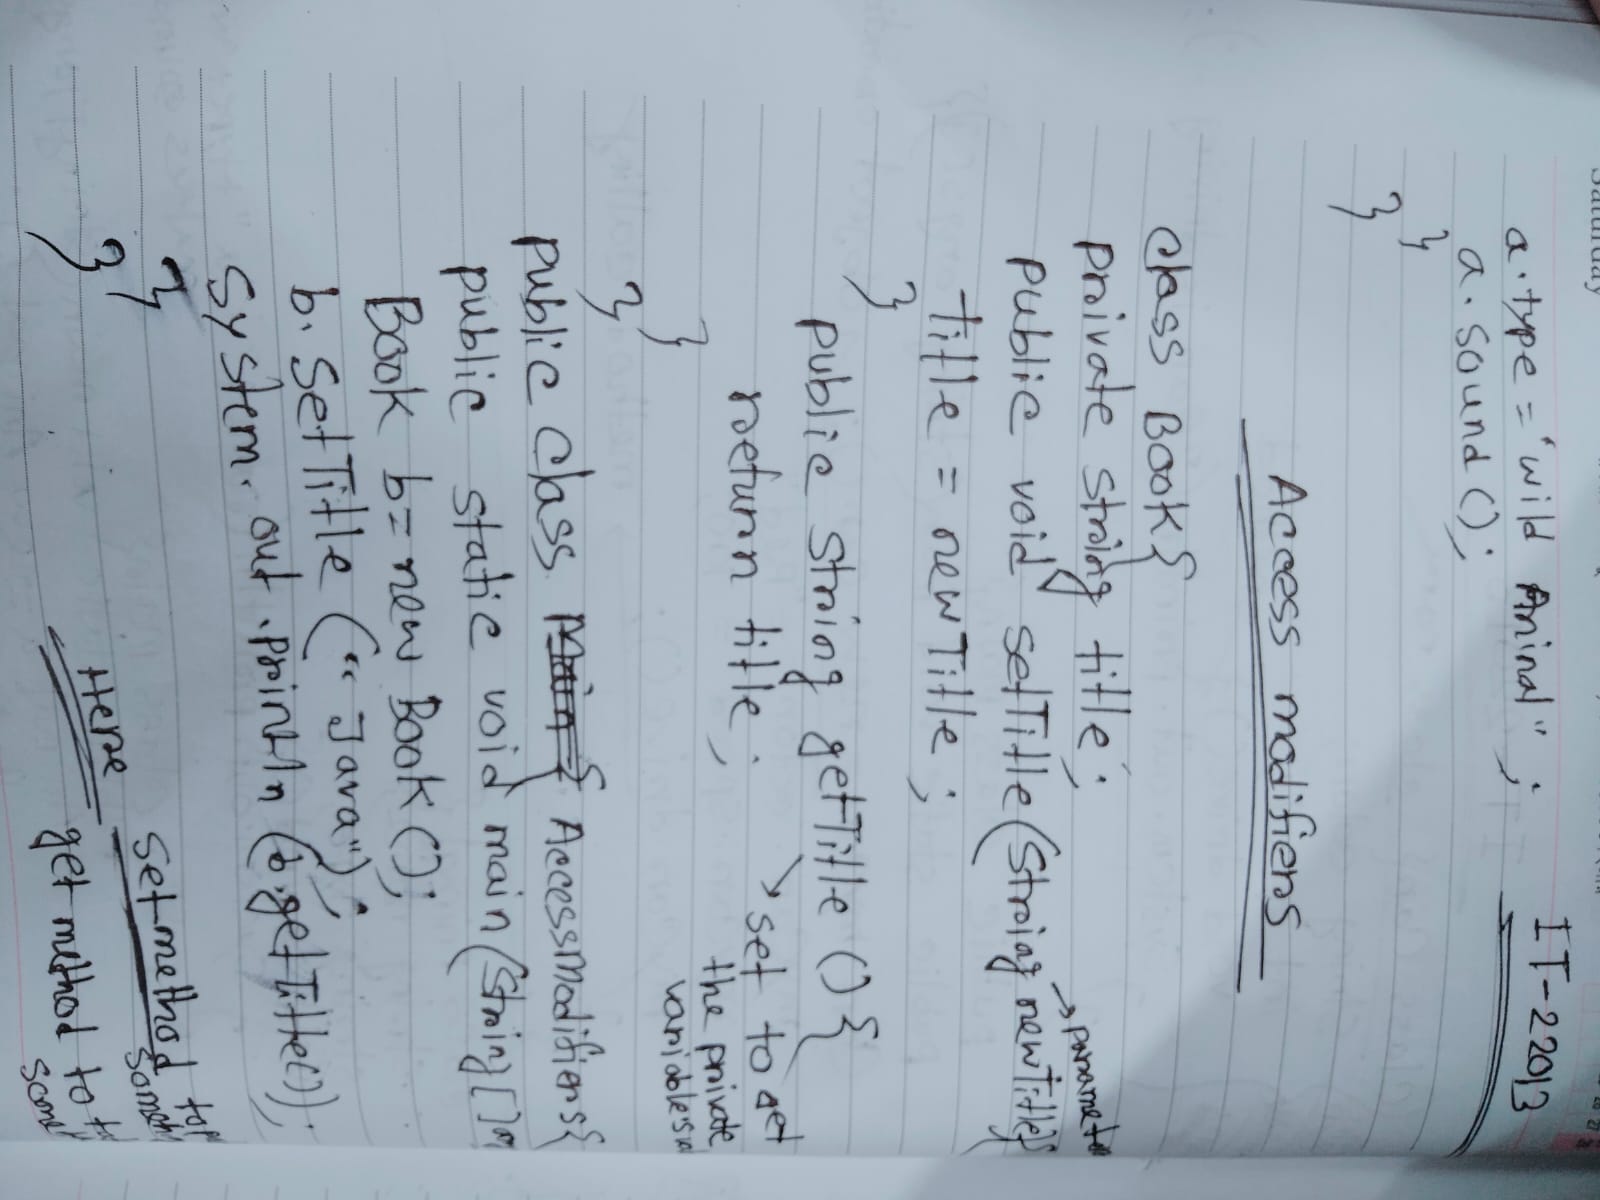 Saturday
IT-22013
a.type = "wild Animal";
a.sound();
}
}
Access modifiers
class Book{
private string title;
public void setTitle(String newTitle){
→ parameter
title = newTitle;
}
public String getTitle(){
return title;
→ set to get
the private
}
}
public class Main{ AccessModifiers{
public static void main(String[]
Book b=new Book();
b.SetTitle("Java");
System.out.println(b.getTitle());
}
}
}
Here set method to
get method to